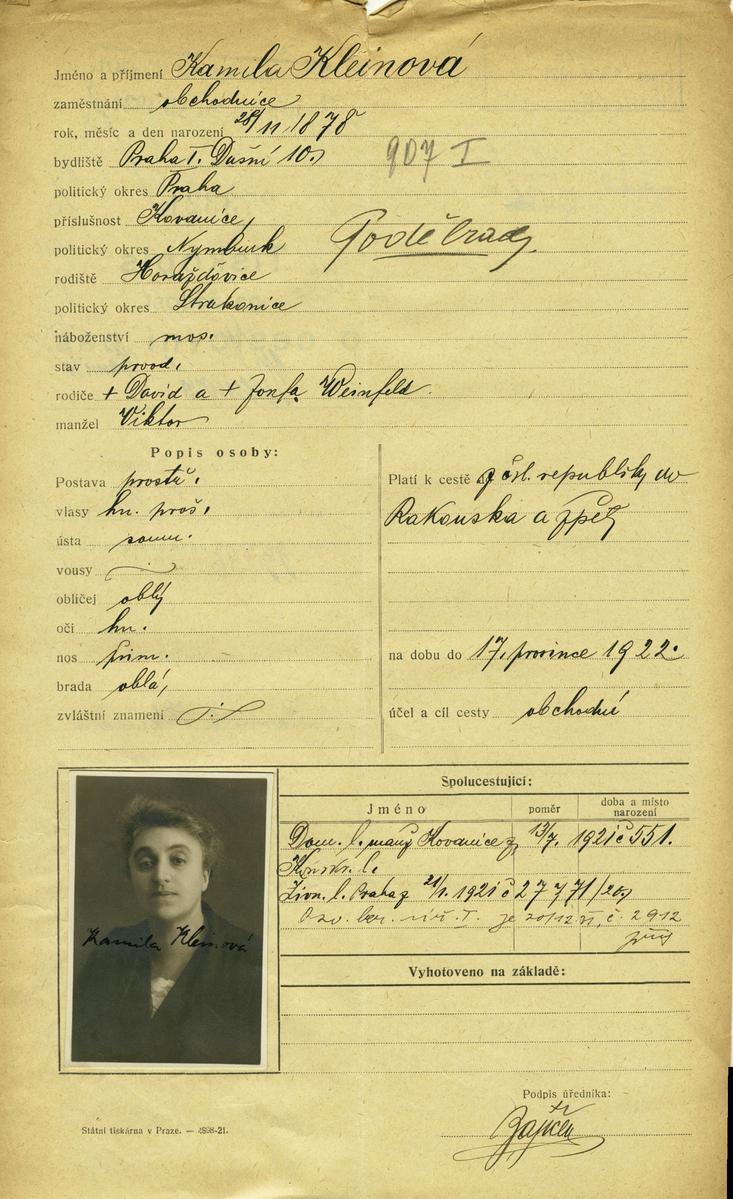 Jméno a příjmení Kamila Kleinová
zaměstnání obchodnice
rok, měsíc a den narození 28/11 1878
bydliště Praha I. Dušní 10.
907 I
politický okres Praha
příslušnost Kovanice,
politický okres Nymburk
Poděbrady
rodiště Horažďovice
politický okres Strakonice
náboženství mos.
stav provd.
rodiče + David a + Josefa Weinfeld
manžel Viktor
Popis osoby:
Postava prostř.
vlasy hn. proš.
ústa soum.
vousy
obličej oblý
oči hn.
nos přim.
brada oblá,
zvláštní znamení
Platí k cestě z čsl. republiky do
Rakouska a zpět
na dobu do 17. prosince 1922.
účel a cíl cesty obchodní
Kamila Kleinová
Spolucestující:
Jméno poměr doba a místo narození
Dom. l. Kovanice z 13/7. 1921 č 551.
Živn. l. Praha z 21/1. 1921 č 27771/20
č. 2912
Vyhotoveno na základě:
Podpis úředníka:
Státní tiskárna v Praze. — 2898-21.